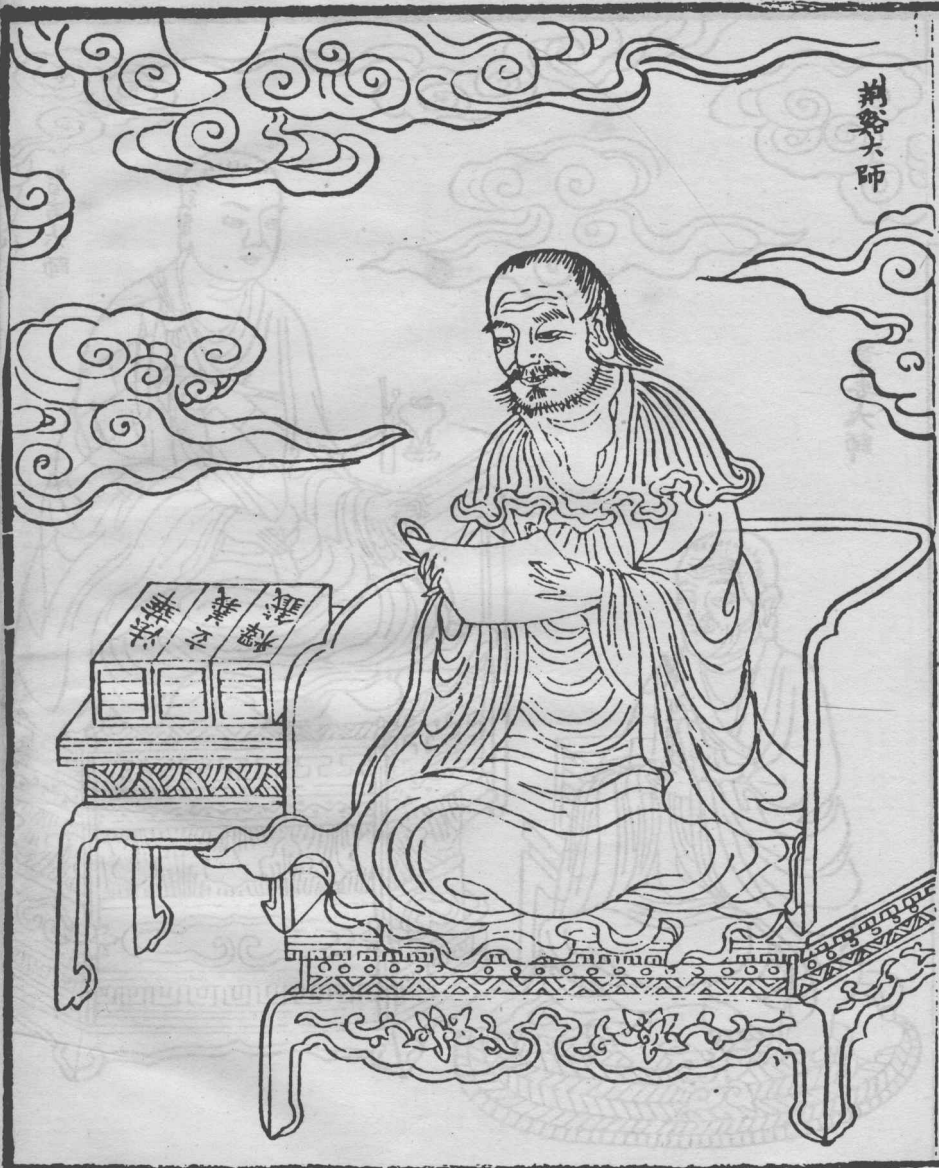 荆谿大師
法華
玄義
釋籤